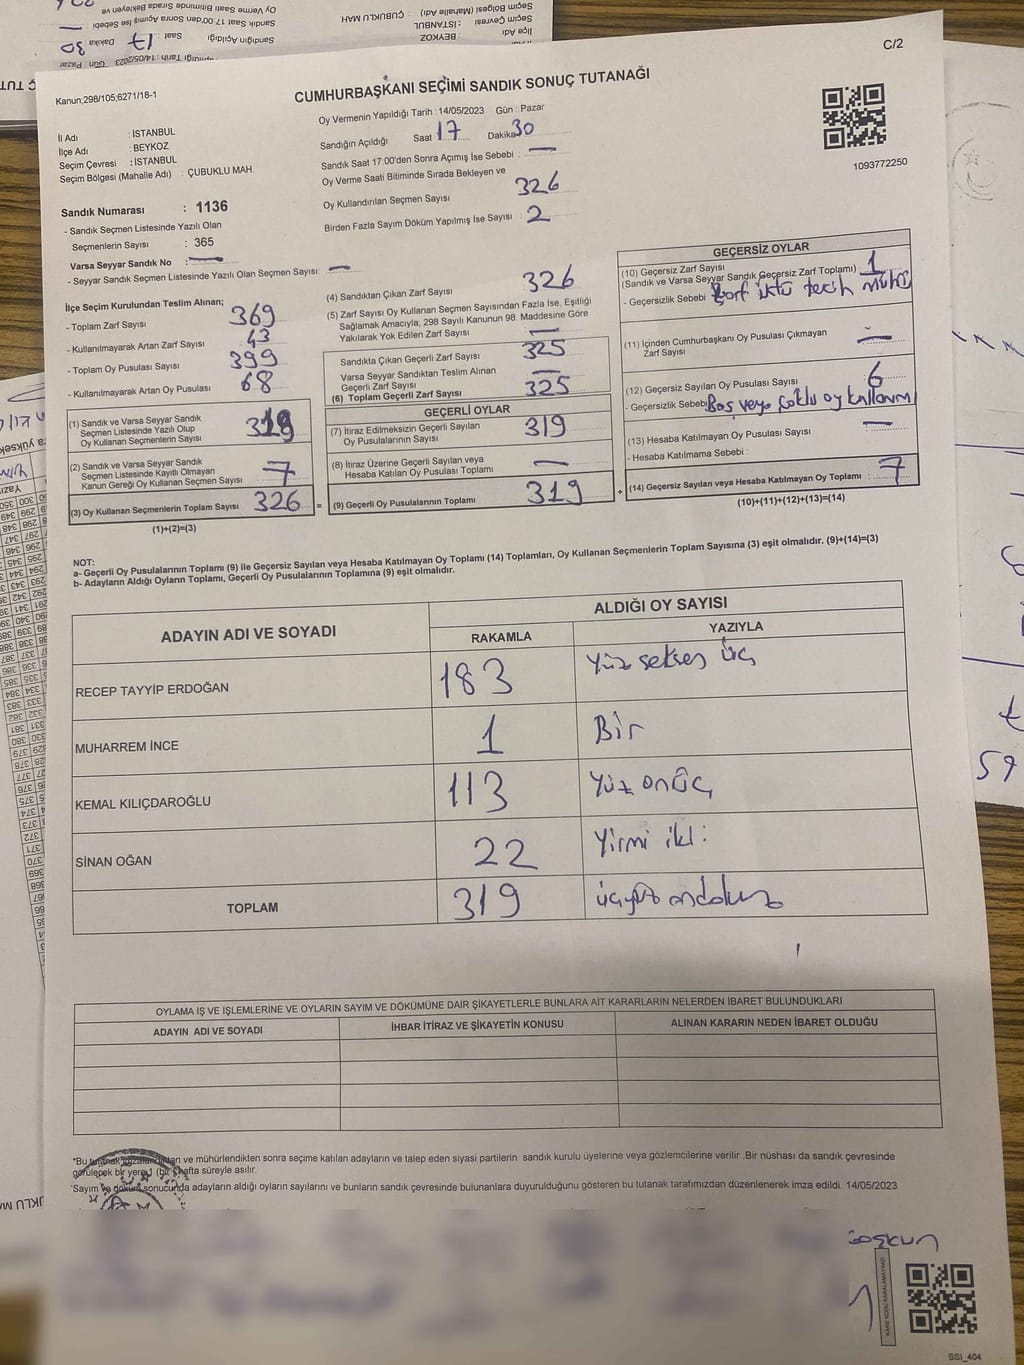 C/2
Kanun;298/105;6271/18-1
CUMHURBAŞKANI SEÇİMİ SANDIK SONUÇ TUTANAĞI
İl Adı : İSTANBUL
İlçe Adı : BEYKOZ
Seçim Çevresi : İSTANBUL
Seçim Bölgesi (Mahalle Adı) : ÇUBUKLU MAH.
Oy Vermenin Yapıldığı Tarih : 14/05/2023 Gün : Pazar
Sandığın Açıldığı Saat 17 Dakika 30
Sandık Saat 17:00'den Sonra Açımış İse Sebebi : —
Oy Verme Saati Bitiminde Sırada Bekleyen ve
Oy Kullandırılan Seçmen Sayısı 326
Birden Fazla Sayım Döküm Yapılmış İse Sayısı : 2
1093772250
Sandık Numarası : 1136
- Sandık Seçmen Listesinde Yazılı Olan
Seçmenlerin Sayısı : 365
Varsa Seyyar Sandık No : —
- Seyyar Sandık Seçmen Listesinde Yazılı Olan Seçmen Sayısı: —
İlçe Seçim Kurulundan Teslim Alınan;
- Toplam Zarf Sayısı 369
- Kullanılmayarak Artan Zarf Sayısı 43
- Toplam Oy Pusulası Sayısı 399
- Kullanılmayarak Artan Oy Pusulası 68
(1) Sandık ve Varsa Seyyar Sandık
Seçmen Listesinde Yazılı Olup
Oy Kullanan Seçmenlerin Sayısı 319
(2) Sandık ve Varsa Seyyar Sandık
Seçmen Listesinde Kayıtlı Olmayan
Kanun Gereği Oy Kullanan Seçmen Sayısı 7
(3) Oy Kullanan Seçmenlerin Toplam Sayısı 326
(1)+(2)=(3)
(4) Sandıktan Çıkan Zarf Sayısı 326
(5) Zarf Sayısı Oy Kullanan Seçmen Sayısından Fazla İse, Eşitliği
Sağlamak Amacıyla, 298 Sayılı Kanunun 98. Maddesine Göre
Yakılarak Yok Edilen Zarf Sayısı —
Sandıkta Çıkan Geçerli Zarf Sayısı 325
Varsa Seyyar Sandıktan Teslim Alınan
Geçerli Zarf Sayısı —
(6) Toplam Geçerli Zarf Sayısı 325
GEÇERLİ OYLAR
(7) İtiraz Edilmeksizin Geçerli Sayılan
Oy Pusulalarının Sayısı 319
(8) İtiraz Üzerine Geçerli Sayılan veya
Hesaba Katılan Oy Pusulası Toplamı —
= (9) Geçerli Oy Pusulalarının Toplamı 319 +
GEÇERSİZ OYLAR
(10) Geçersiz Zarf Sayısı
(Sandık ve Varsa Seyyar Sandık Geçersiz Zarf Toplamı) 1
- Geçersizlik Sebebi Zarf üktü tecih mührü
(11) İçinden Cumhurbaşkanı Oy Pusulası Çıkmayan
Zarf Sayısı —
(12) Geçersiz Sayılan Oy Pusulası Sayısı 6
- Geçersizlik Sebebi Boş veya çoklu oy kullanım
(13) Hesaba Katılmayan Oy Pusulası Sayısı —
- Hesaba Katılmama Sebebi :
(14) Geçersiz Sayılan veya Hesaba Katılmayan Oy Toplamı : 7
(10)+(11)+(12)+(13)=(14)
NOT:
a- Geçerli Oy Pusulalarının Toplamı (9) ile Geçersiz Sayılan veya Hesaba Katılmayan Oy Toplamı (14) Toplamları, Oy Kullanan Seçmenlerin Toplam Sayısına (3) eşit olmalıdır. (9)+(14)=(3)
b- Adayların Aldığı Oyların Toplamı, Geçerli Oy Pusulalarının Toplamına (9) eşit olmalıdır.
ADAYIN ADI VE SOYADI ALDIĞI OY SAYISI
RAKAMLA YAZIYLA
RECEP TAYYİP ERDOĞAN 183 Yüz seksen üç
MUHARREM İNCE 1 Bir
KEMAL KILIÇDAROĞLU 113 Yüz onüç
SİNAN OĞAN 22 Yirmi iki
TOPLAM 319 üçyüz ondokuz
OYLAMA İŞ VE İŞLEMLERİNE VE OYLARIN SAYIM VE DÖKÜMÜNE DAİR ŞİKAYETLERLE BUNLARA AİT KARARLARIN NELERDEN İBARET BULUNDUKLARI
ADAYIN ADI VE SOYADI İHBAR İTİRAZ VE ŞİKAYETİN KONUSU ALINAN KARARIN NEDEN İBARET OLDUĞU
*Bu tutanak ve mühürlendikten sonra seçime katılan adayların ve talep eden siyasi partilerin sandık kurulu üyelerine veya gözlemcilerine verilir .Bir nüshası da sandık çevresinde
görülepek bir yere 1 (bir) hafta süreyle asılır.
*Sayım ve döküm sonucunda adayların aldığı oyların sayılarını ve bunların sandık çevresinde bulunanlara duyurulduğunu gösteren bu tutanak tarafımızdan düzenlenerek imza edildi. 14/05/2023
Coşkun
SSI_404